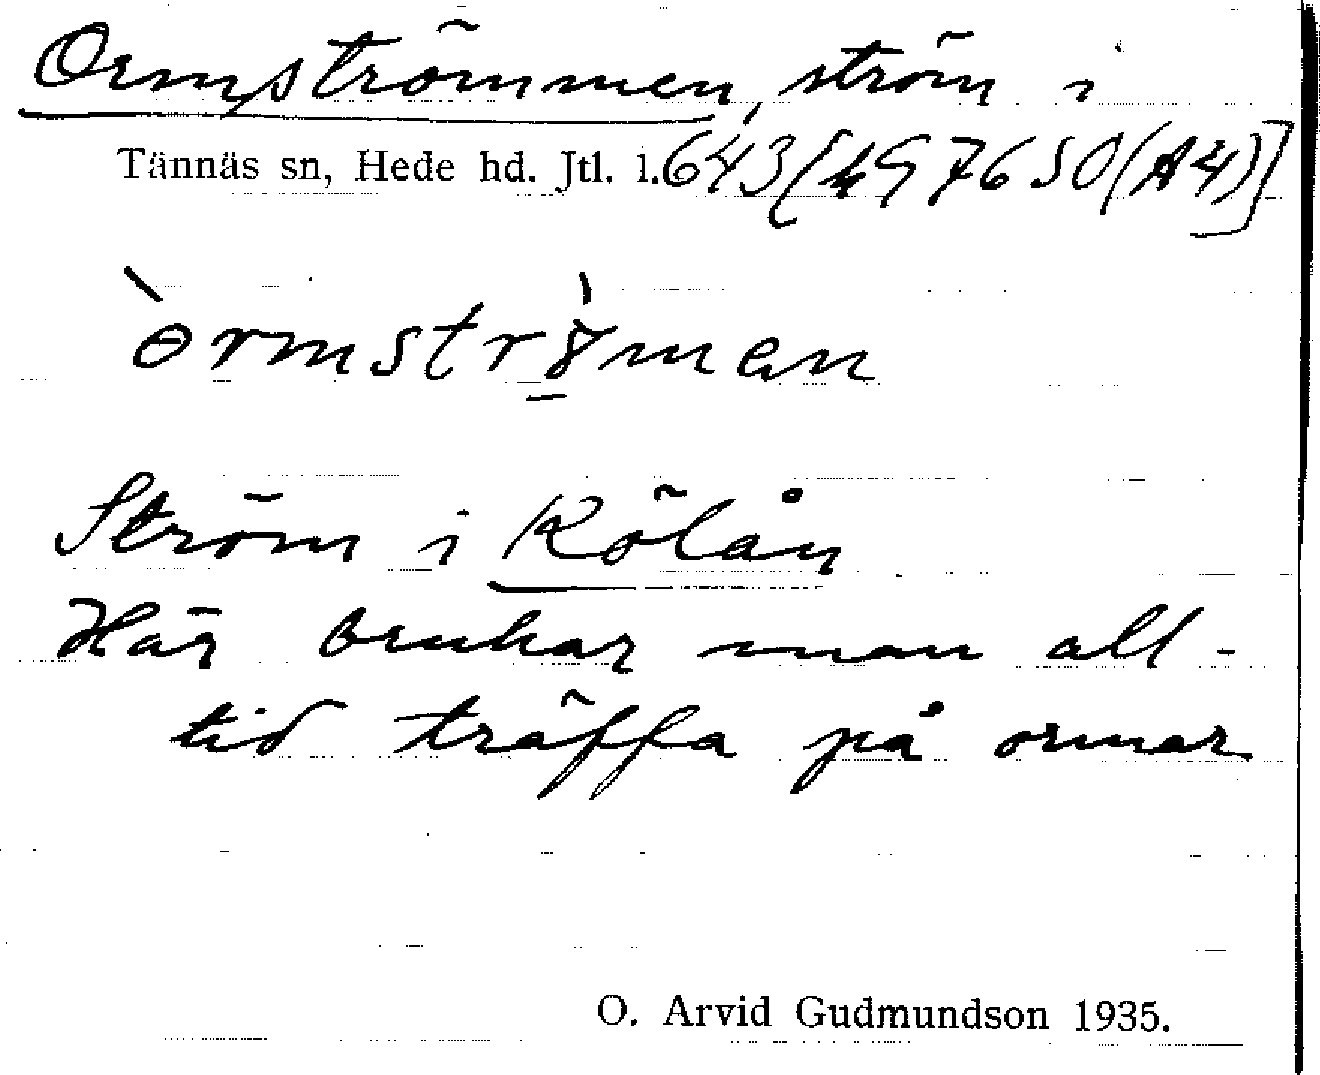 Ormströmmen, ström i
Tännäs sn, Hede hd. Jtl. l. 643 [497650 (A4)]
òrmströ̀men
Ström i Kölån
Här brukar man all-
tid träffa på ormar
O. Arvid Gudmundson 1935.